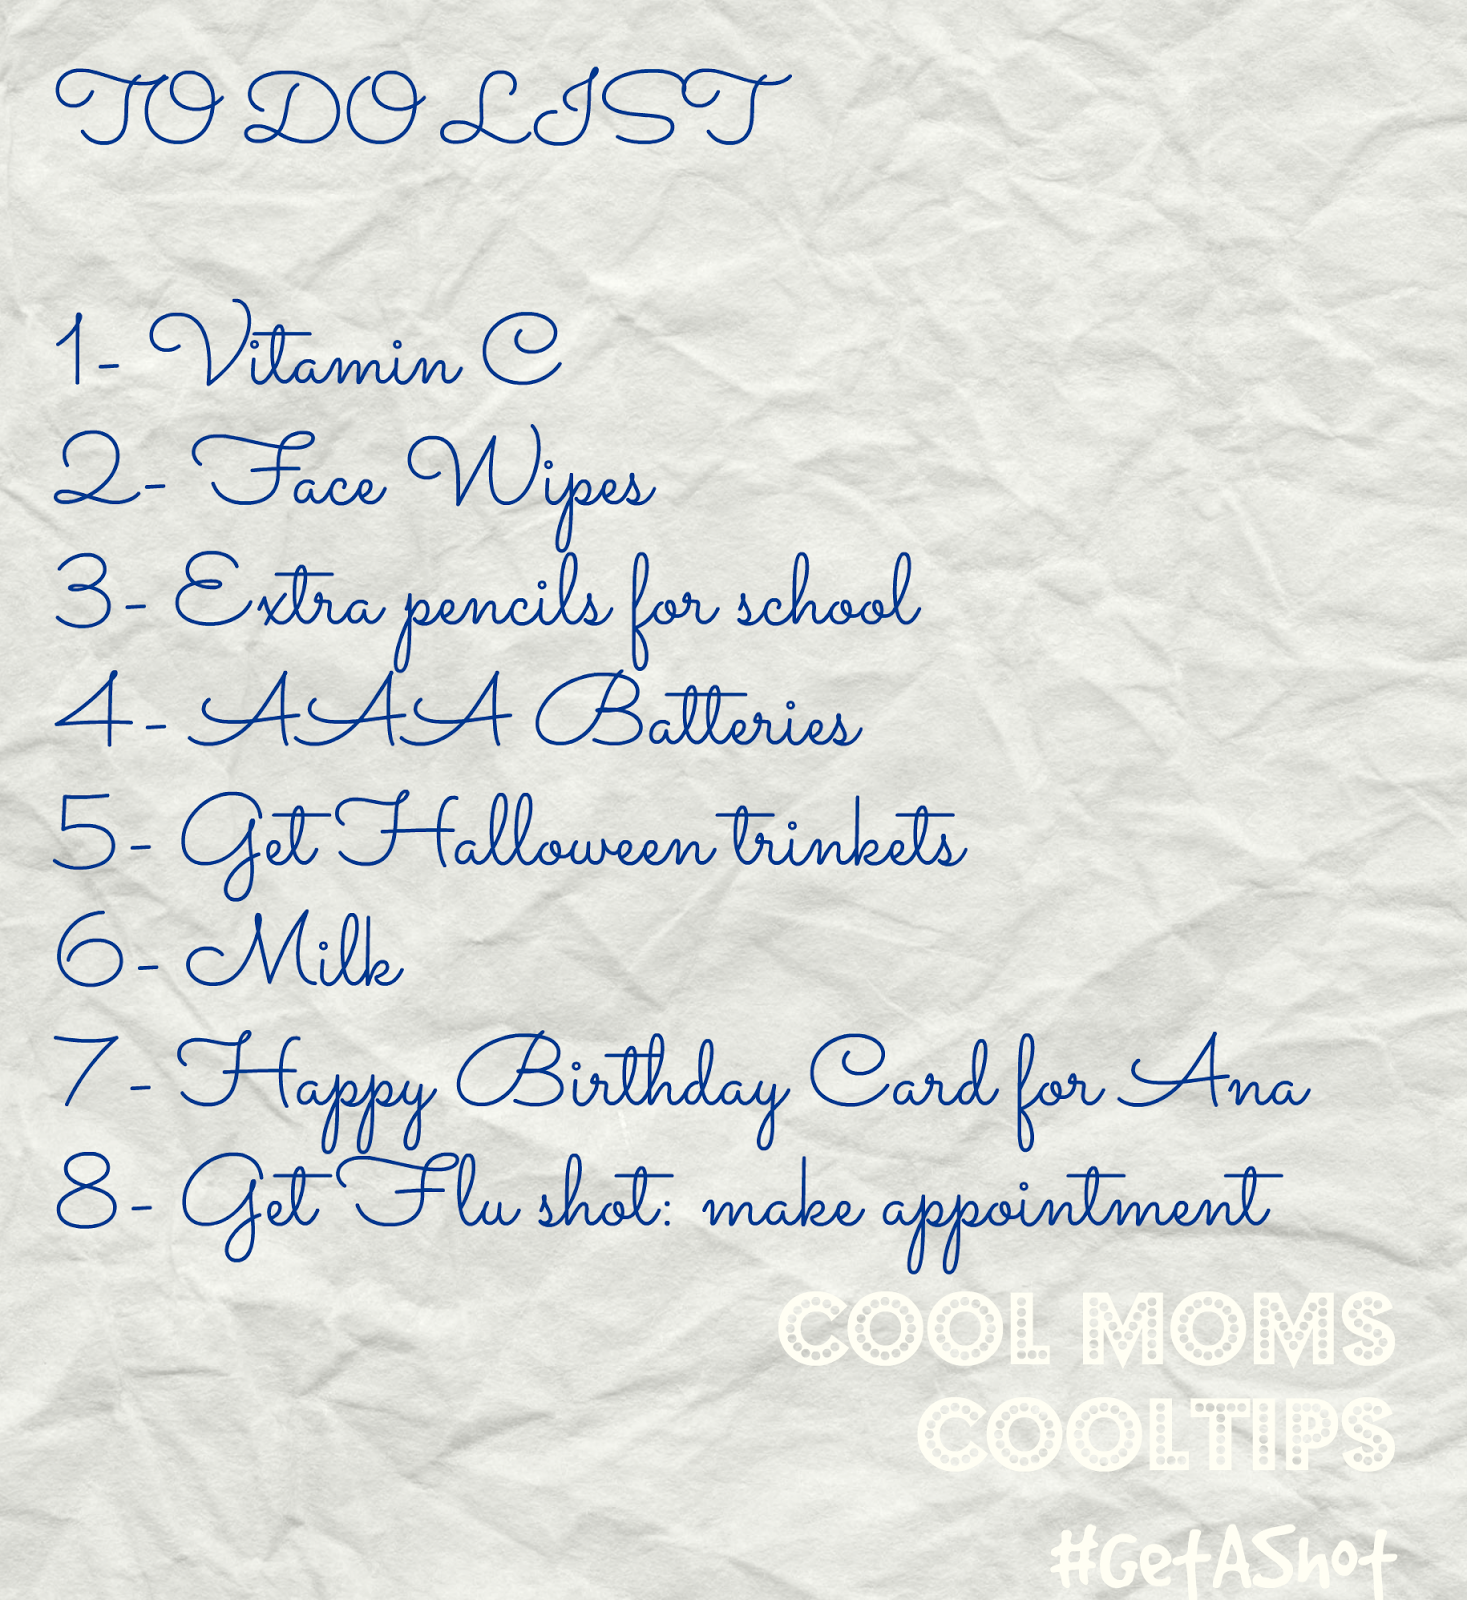 TO DO LIST
1- Vitamin C
2- Face Wipes
3- Extra pencils for school
4- AAA Batteries
5- Get Halloween trinkets
6- Milk
7- Happy Birthday Card for Ana
8- Get Flu shot: make appointment
COOL MOMS
COOLTIPS
#GetAShot